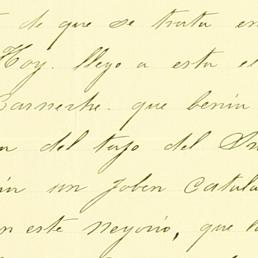 de que se trata en
Hoy. llego a esta
que benia
del tajo del
un joben catala
en este negocio, que